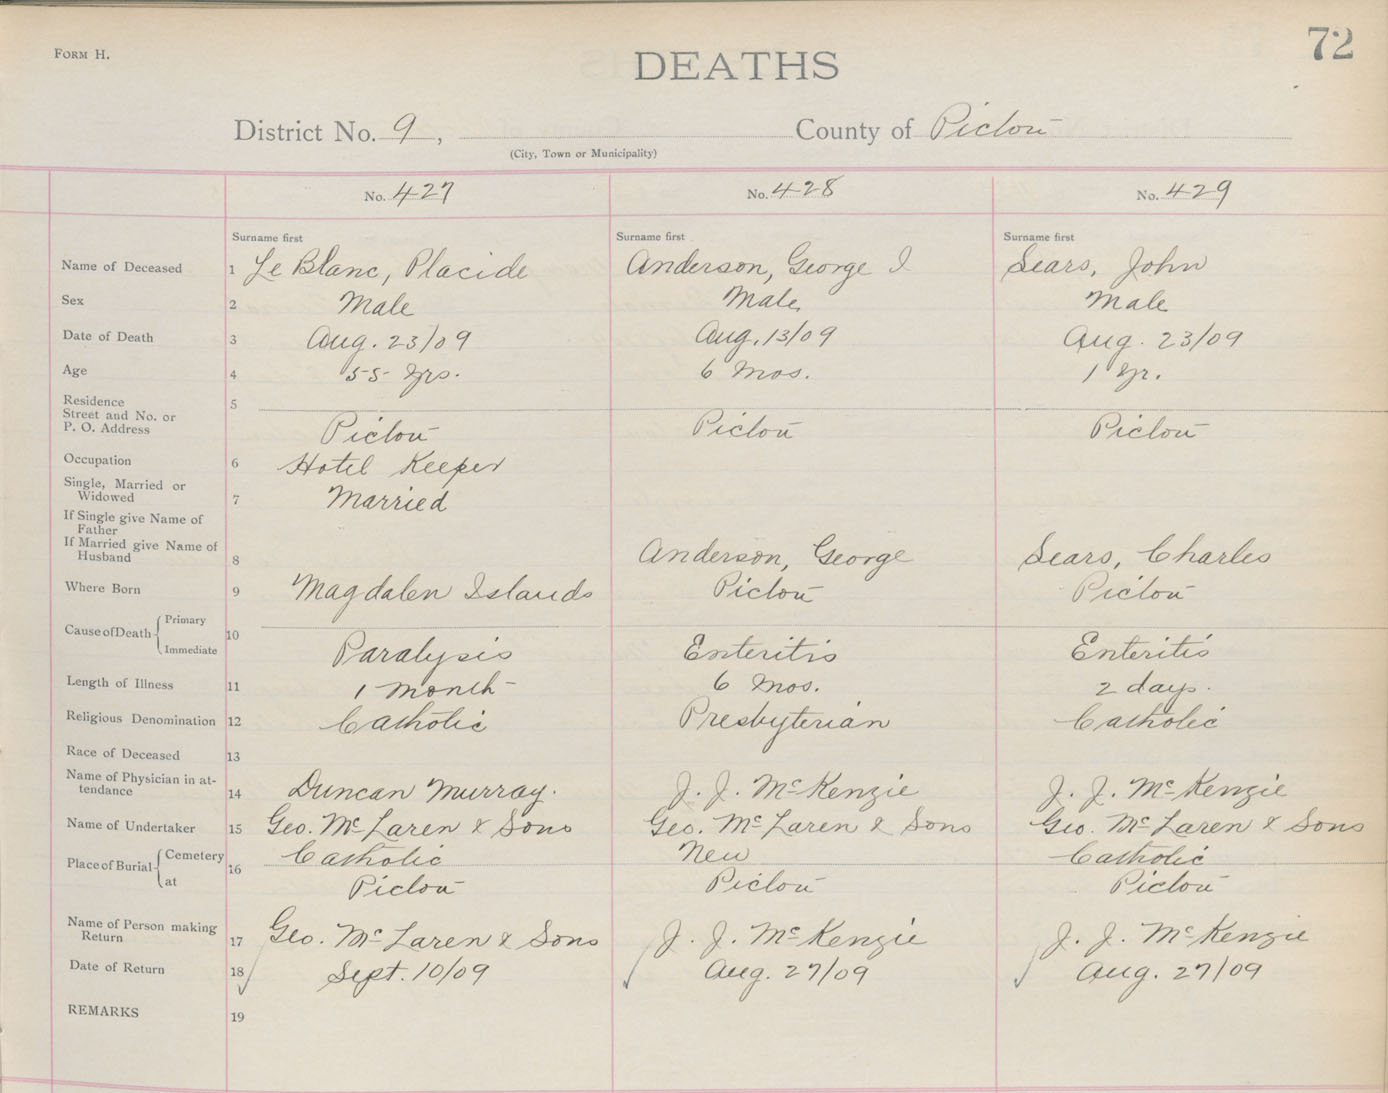 72
FORM H.
DEATHS
District No. 9, County of Pictou
(City, Town or Municipality)
No. 427 No. 428 No. 429
Surname first Surname first Surname first
Name of Deceased 1 Le Blanc, Placide Anderson, George I Sears, John
Sex 2 Male Male Male
Date of Death 3 Aug. 23/09 Aug. 13/09 Aug. 23/09
Age 4 55 yrs. 6 mos. 1 yr.
Residence 5
Street and No. or
P. O. Address Pictou Pictou Pictou
Occupation 6 Hotel Keeper
Single, Married or
Widowed 7 Married
If Single give Name of
Father
If Married give Name of
Husband 8 Anderson, George Sears, Charles
Where Born 9 Magdalen Islands Pictou Pictou
Cause of Death Primary 10
Immediate Paralysis Enteritis Enteritis
Length of Illness 11 1 month 6 mos. 2 days.
Religious Denomination 12 Catholic Presbyterian Catholic
Race of Deceased 13
Name of Physician in at-
tendance 14 Duncan Murray. J. J. McKenzie J. J. McKenzie
Name of Undertaker 15 Geo. McLaren & Sons Geo. McLaren & Sons Geo. McLaren & Sons
Place of Burial Cemetery 16 Catholic New Catholic
at Pictou Pictou Pictou
Name of Person making
Return 17 Geo. McLaren & Sons J. J. McKenzie J. J. McKenzie
Date of Return 18 Sept. 10/09 Aug. 27/09 Aug. 27/09
REMARKS 19